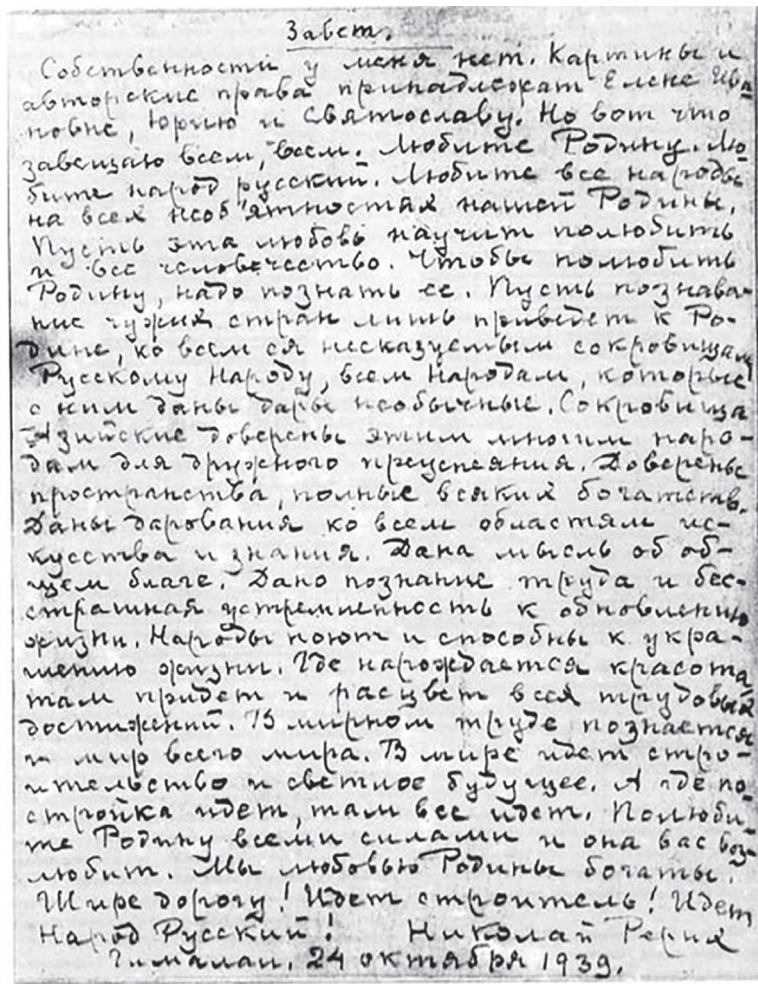 Завет.
Собственности у меня нет. Картины и
авторские права принадлежат Елене Ива-
новне, Юрию и Святославу. Но вот что
завещаю всем, всем. Любите Родину. Лю-
бите народ русский. Любите все народы
на всех необ'ятностях нашей Родины.
Пусть эта любовь научит полюбить
и все человечество. Чтобы полюбить
Родину, надо познать ее. Пусть познава-
ние чужих стран лишь приведет к Ро-
дине, ко всем ея несказуемым сокровищам.
Русскому Народу, всем Народам, которые
с ним даны дары необычные. Сокровища
Азийские доверены этим многим наро-
дам для дружного преуспеяния. Доверены
пространства, полные всяких богатств.
Даны дарования ко всем областям ис-
кусства и знания. Дана мысль об об-
щем благе. Дано познание труда и бес-
страшная устремленность к обновлению
жизни. Народы поют и способны к укра-
шению жизни. Где нарождается красота,
там придет и расцвет всех трудовых
достижений. В мирном труде познается
и мир всего мира. В мире идет стро-
ительство и светлое будущее. А где по-
стройка идет, там все идет. Полюби-
те Родину всеми силами и она вас воз-
любит. Мы любовью Родины богаты.
Шире дорогу! Идет строитель! Идет
Народ Русский! Николай Рерих
Гималаи. 24 октября 1939.